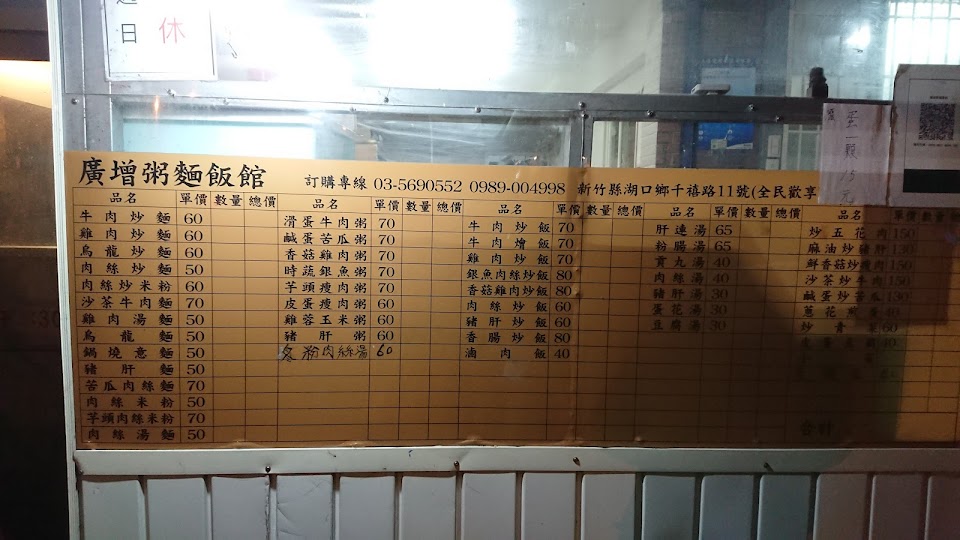 日 休
廣增粥麵飯館 訂購專線 03-5690552 0989-004998 新竹縣湖口鄉千禧路11號(全民歡享
品名 單價 數量 總價
牛肉炒麵 60
雞肉炒麵 60
烏龍炒麵 60
肉絲炒麵 50
肉絲炒米粉 60
沙茶牛肉麵 70
雞肉湯麵 50
烏龍麵 50
鍋燒意麵 50
豬肝麵 50
苦瓜肉絲麵 70
肉絲米粉 50
芋頭肉絲米粉 70
肉絲湯麵 50
品名 單價 數量 總價
滑蛋牛肉粥 70
鹹蛋苦瓜粥 70
香菇雞肉粥 70
時蔬銀魚粥 70
芋頭瘦肉粥 70
皮蛋瘦肉粥 60
雞蓉玉米粥 60
豬肝粥 60
冬粉肉絲湯 60
品名 單價 數量 總價
牛肉炒飯 70
牛肉燴飯 70
雞肉炒飯 70
銀魚肉絲炒飯 80
香菇雞肉炒飯 80
肉絲炒飯 60
豬肝炒飯 60
香腸炒飯 80
滷肉飯 40
品名 單價 數量 總價
肝連湯 65
粉腸湯 65
貢丸湯 40
肉絲湯 40
豬肝湯 30
蛋花湯 30
豆腐湯 30
品名 單價 數量 總
炒五花肉 150
麻油炒豬肝 130
鮮香菇炒瘦肉 150
沙茶炒牛肉 150
鹹蛋炒苦瓜 130
蔥花煎蛋 40
炒青菜 60
合計
一顆 15元